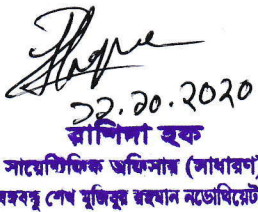 ১১.১০.২০২০
রাশিদা হক
সায়েন্টিফিক অফিসার (সাধারণ)
বঙ্গবন্ধু শেখ মুজিবুর রহমান নভোথিয়েটার